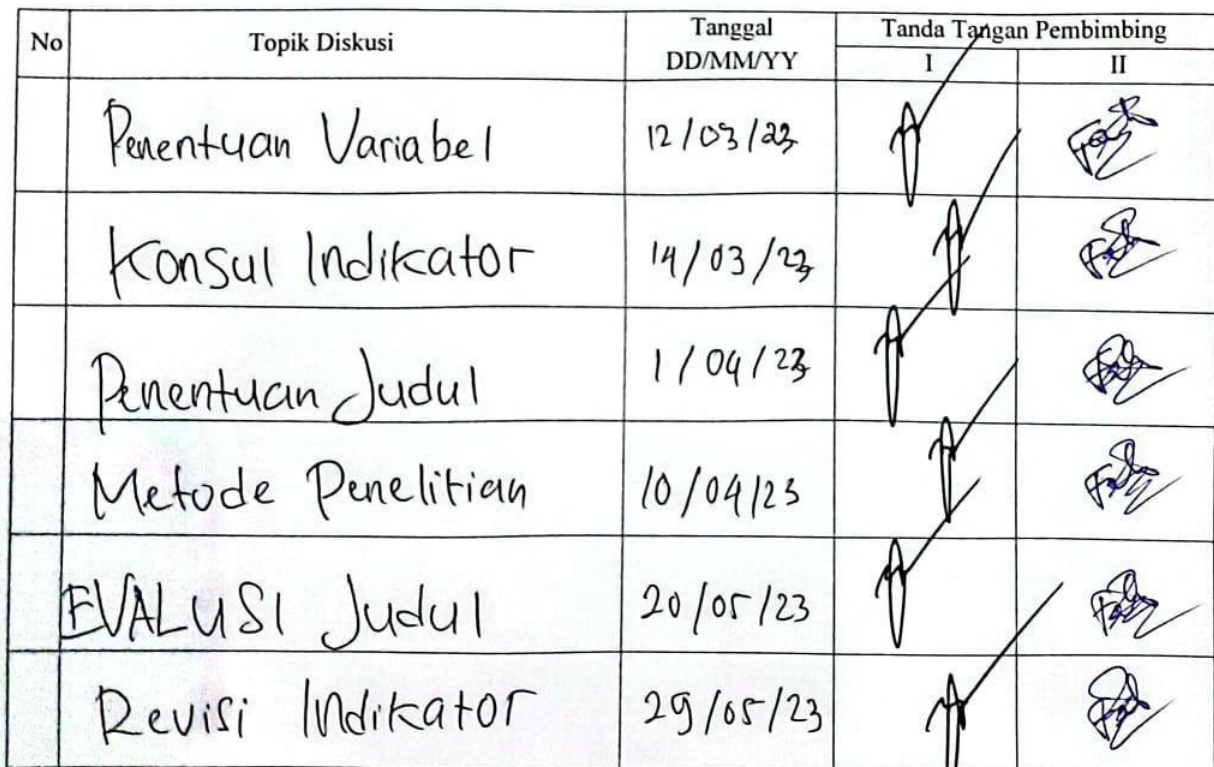 No Topik Diskusi Tanggal DD/MM/YY Tanda Tangan Pembimbing
I II
Penentuan Variabel 12/03/23
Konsul Indikator 14/03/23
Penentuan Judul 1/04/23
Metode Penelitian 10/04/23
EVALUSI Judul 20/05/23
Revisi Indikator 29/05/23